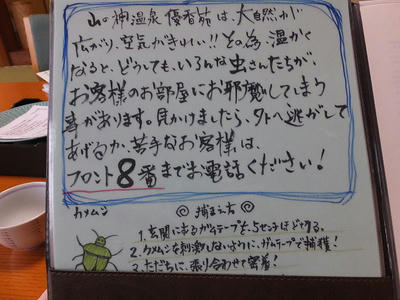 山の神温泉 優香苑は、大自然が
広がり、空気がきれい!! その為、温かく
なると、どうしても、いろんな虫さんたちが、
お客様のお部屋にお邪魔してしまう
事があります。見かけましたら、外へ逃がして
あげるか、苦手なお客様は、
フロント8番までお電話ください!
カメムシ ◎捕まえ方◎
1.玄関にあるガムテープを、5センチほどちぎる。
2.カメムシを刺激しないように、ガムテープで捕獲!
3.ただちに、張り合わせて密着!